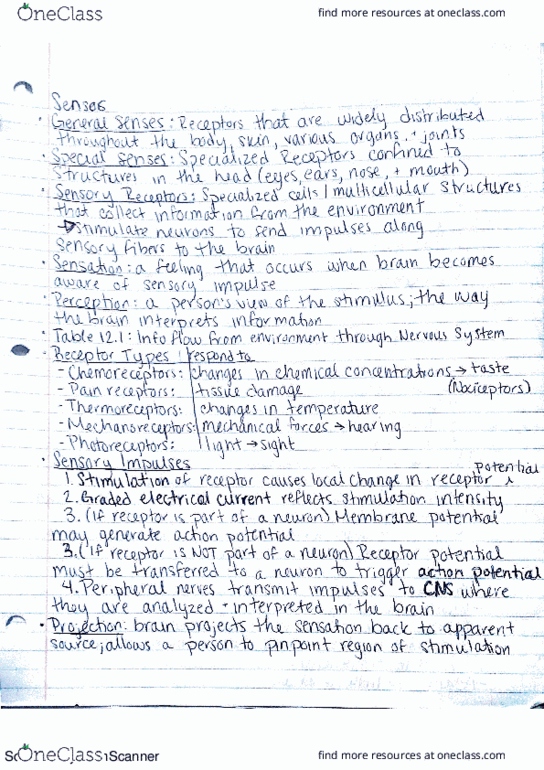 OneClass
find more resources at oneclass.com
Senses
• General Senses: Receptors that are widely distributed
throughout the body, skin, various organs, + joints
• Special Senses: Specialized Receptors confined to
structures in the head (eyes, ears, nose, + mouth)
• Sensory Receptors: Specialized cells / multicellular structures
that collect information from the environment
↳ stimulate neurons to send impulses along
sensory fibers to the brain
• Sensation: a feeling that occurs when brain becomes
aware of sensory impulse
• Perception: a person's view of the stimulus; the way
the brain interprets information
• Table 12.1: Info flow from environment through Nervous System
• Receptor Types | respond to
- Chemoreceptors: changes in chemical concentrations → taste
- Pain receptors: tissue damage (Nociceptors)
- Thermoreceptors: changes in temperature
- Mechanoreceptors: mechanical forces → hearing
- Photoreceptors: light → sight
• Sensory Impulses
1. Stimulation of receptor causes local change in receptor ^ potential
2. Graded electrical current reflects stimulation intensity
3. (If receptor is part of a neuron) Membrane potential
may generate action potential
3. (If receptor is NOT part of a neuron) Receptor potential
must be transferred to a neuron to trigger action potential
4. Peripheral nerves transmit impulses to CNS where
they are analyzed + interpreted in the brain
• Projection: brain projects the sensation back to apparent
source; allows a person to pinpoint region of stimulation
OneClass
Scanner
find more resources at oneclass.com